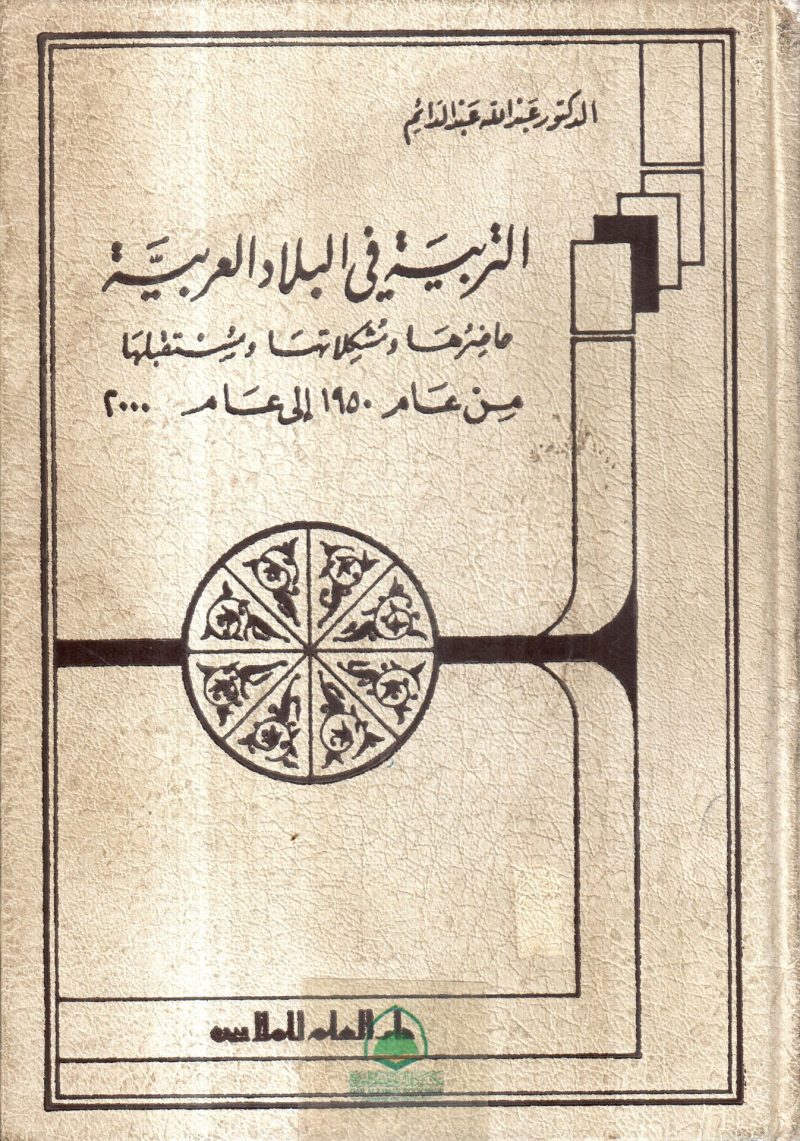 الدكتور عبد الله عبد الدائم
التربية في البلاد العربية
حاضرها ومشكلاتها ومستقبلها
من عام ١٩٥٠ إلى عام ٢٠٠٠
دار العلم للملايين